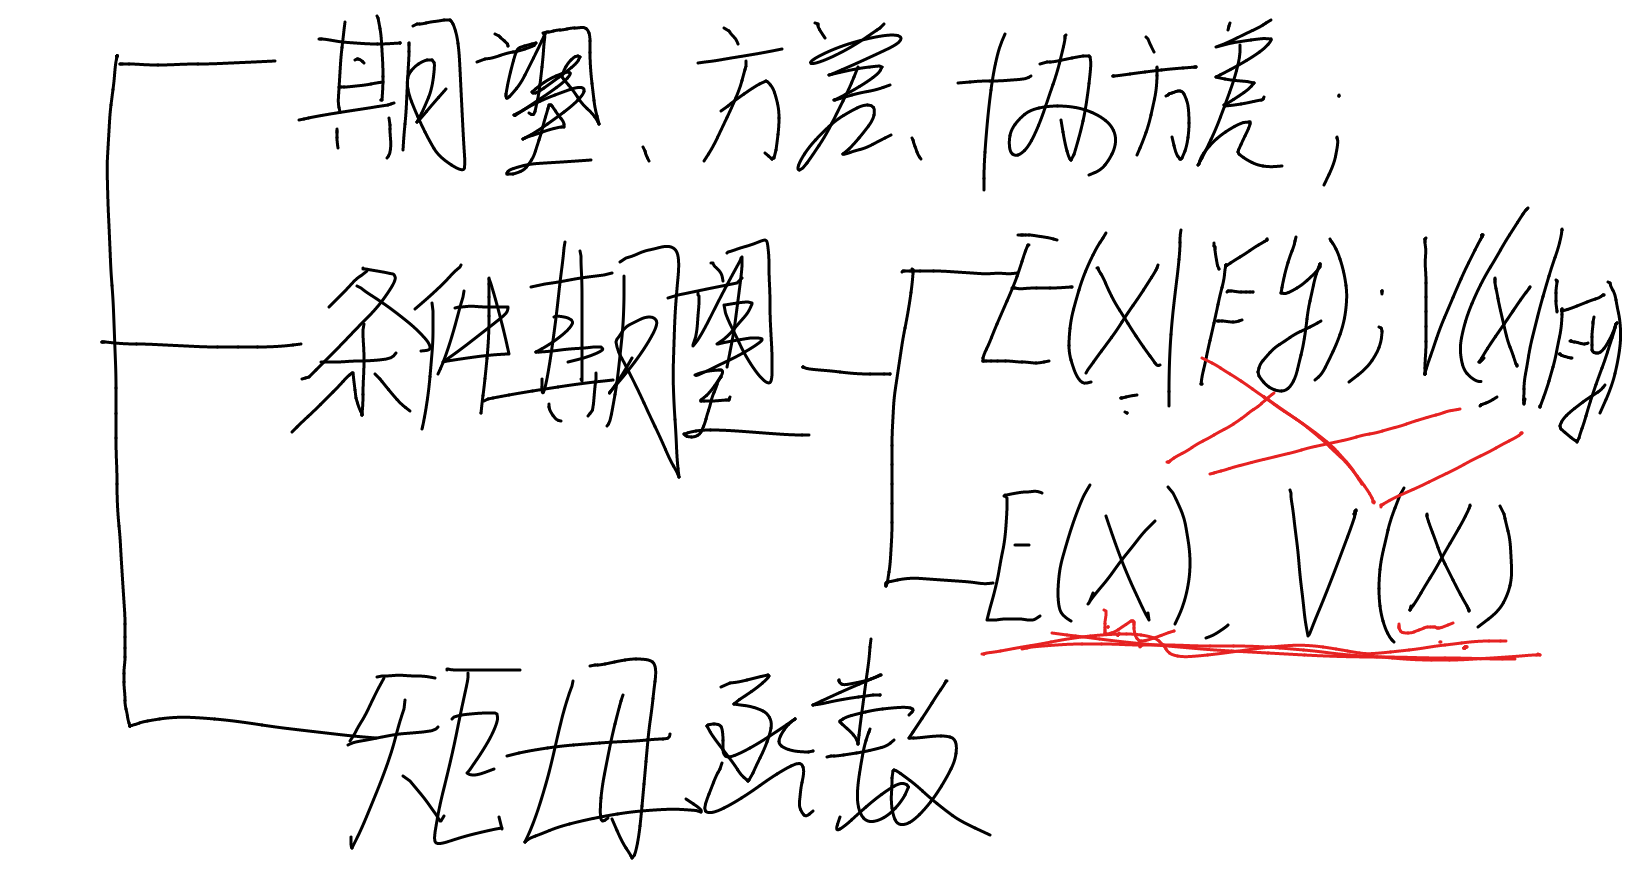 期望、方差、协方差;
条件期望
E(X|F=y); V(X|F=y)
E(X), V(X)
矩母函数